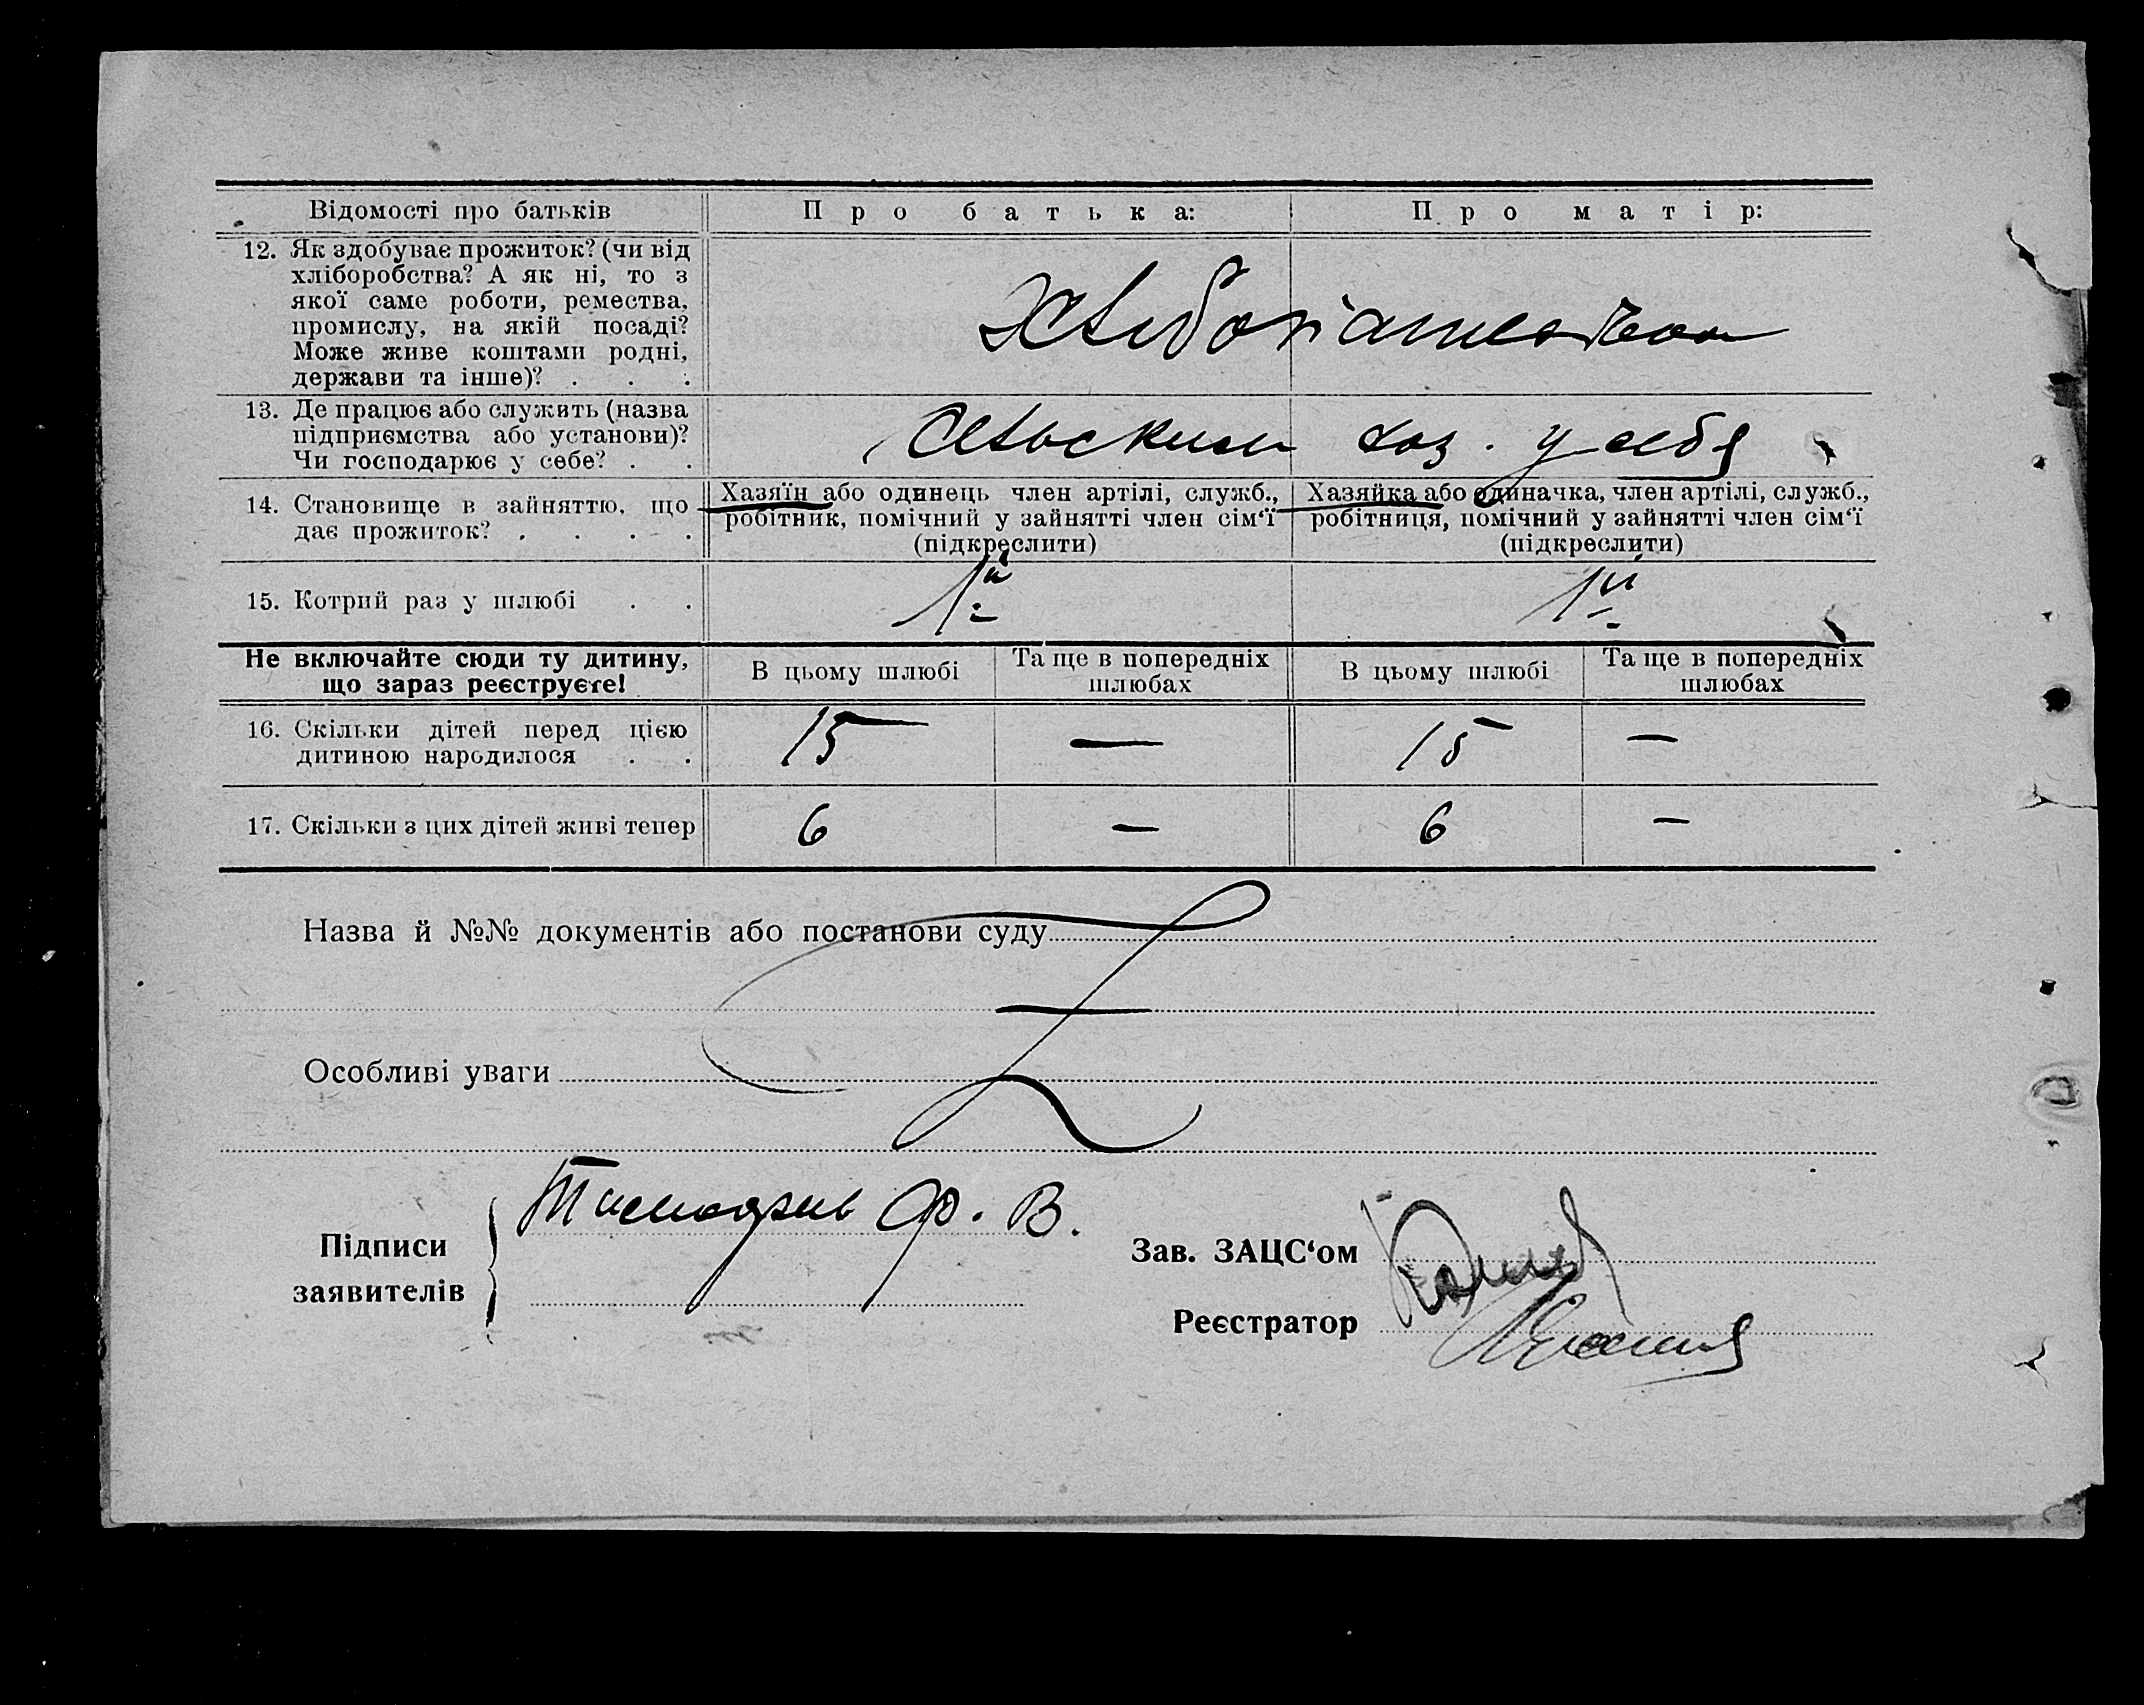 Відомості про батьків
Про батька:
Про матір:
12. Як здобуває прожиток? (чи від
хліборобства? А як ні, то з
якої саме роботи, ремества,
промислу, на якій посаді?
Може живе коштами родні,
держави та інше)? . . .
13. Де працює або служить (назва
підприємства або установи)?
Чи господарює у себе? . .
Сельским хоз. у себя
14. Становище в зайняттю, що
дає прожиток? . . . .
Хазяїн або одинець член артілі, служб.,
робітник, помічний у зайнятті член сім‘ї
(підкреслити)
Хазяйка або одиначка, член артілі, служб.,
робітниця, помічний у зайнятті член сім‘ї
(підкреслити)
15. Котрий раз у шлюбі . .
1й
1й
Не включайте сюди ту дитину,
що зараз реєструєте!
В цьому шлюбі
Та ще в попередніх
шлюбах
В цьому шлюбі
Та ще в попередніх
шлюбах
16. Скільки дітей перед цією
дитиною народилося . .
15 — 15 —
17. Скільки з цих дітей живі тепер
6 — 6 —
Назва й №№ документів або постанови суду
Особливі уваги
Підписи
заявителів
Ф. В.
Зав. ЗАЦС‘ом
Реєстратор